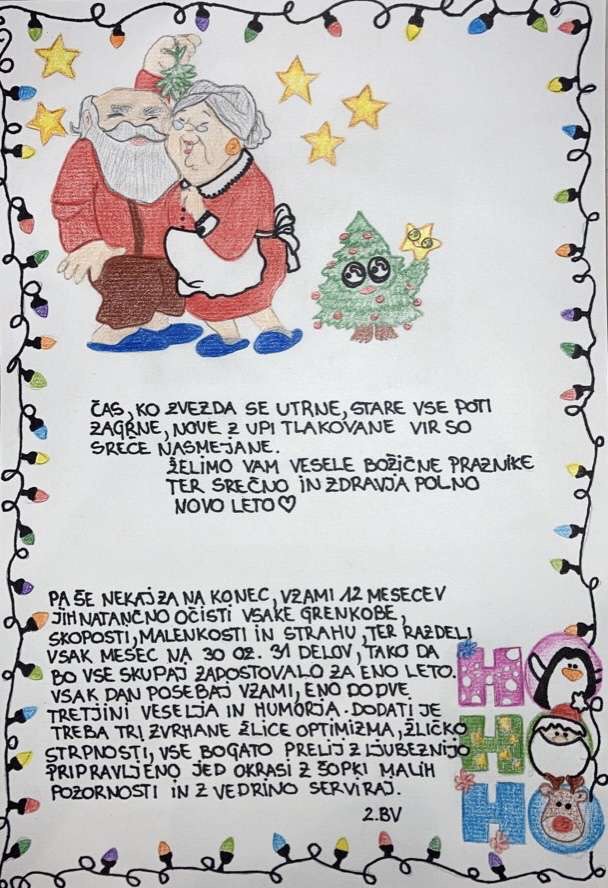 ČAS, KO ZVEZDA SE UTRNE, STARE VSE POTI
ZAGRNE, NOVE Z UPI TLAKOVANE VIR SO
SREČE NASMEJANE.
ŽELIMO VAM VESELE BOŽIČNE PRAZNIKE
TER SREČNO IN ZDRAVJA POLNO
NOVO LETO♡
PA ŠE NEKAJ ZA NA KONEC, VZAMI 12 MESECEV
JIH NATANČNO OČISTI VSAKE GRENKOBE,
SKOPOSTI, MALENKOSTI IN STRAHU, TER RAZDELI
VSAK MESEC NA 30 OZ. 31 DELOV, TAKO DA
BO VSE SKUPAJ ZADOSTOVALO ZA ENO LETO.
VSAK DAN POSEBAJ VZAMI, ENO DO DVE
TRETJINI VESELJA IN HUMORJA. DODATI JE
TREBA TRI ZVRHANE ŽLICE OPTIMIZMA, ŽLIČKO
STRPNOSTI, VSE BOGATO PRELIJ Z LJUBEZNIJO
PRIPRAVLJENO JED OKRASI Z ŠOPKI MALIH
POZORNOSTI IN Z VEDRINO SERVIRAJ.
2.BV
HO
HO
HO